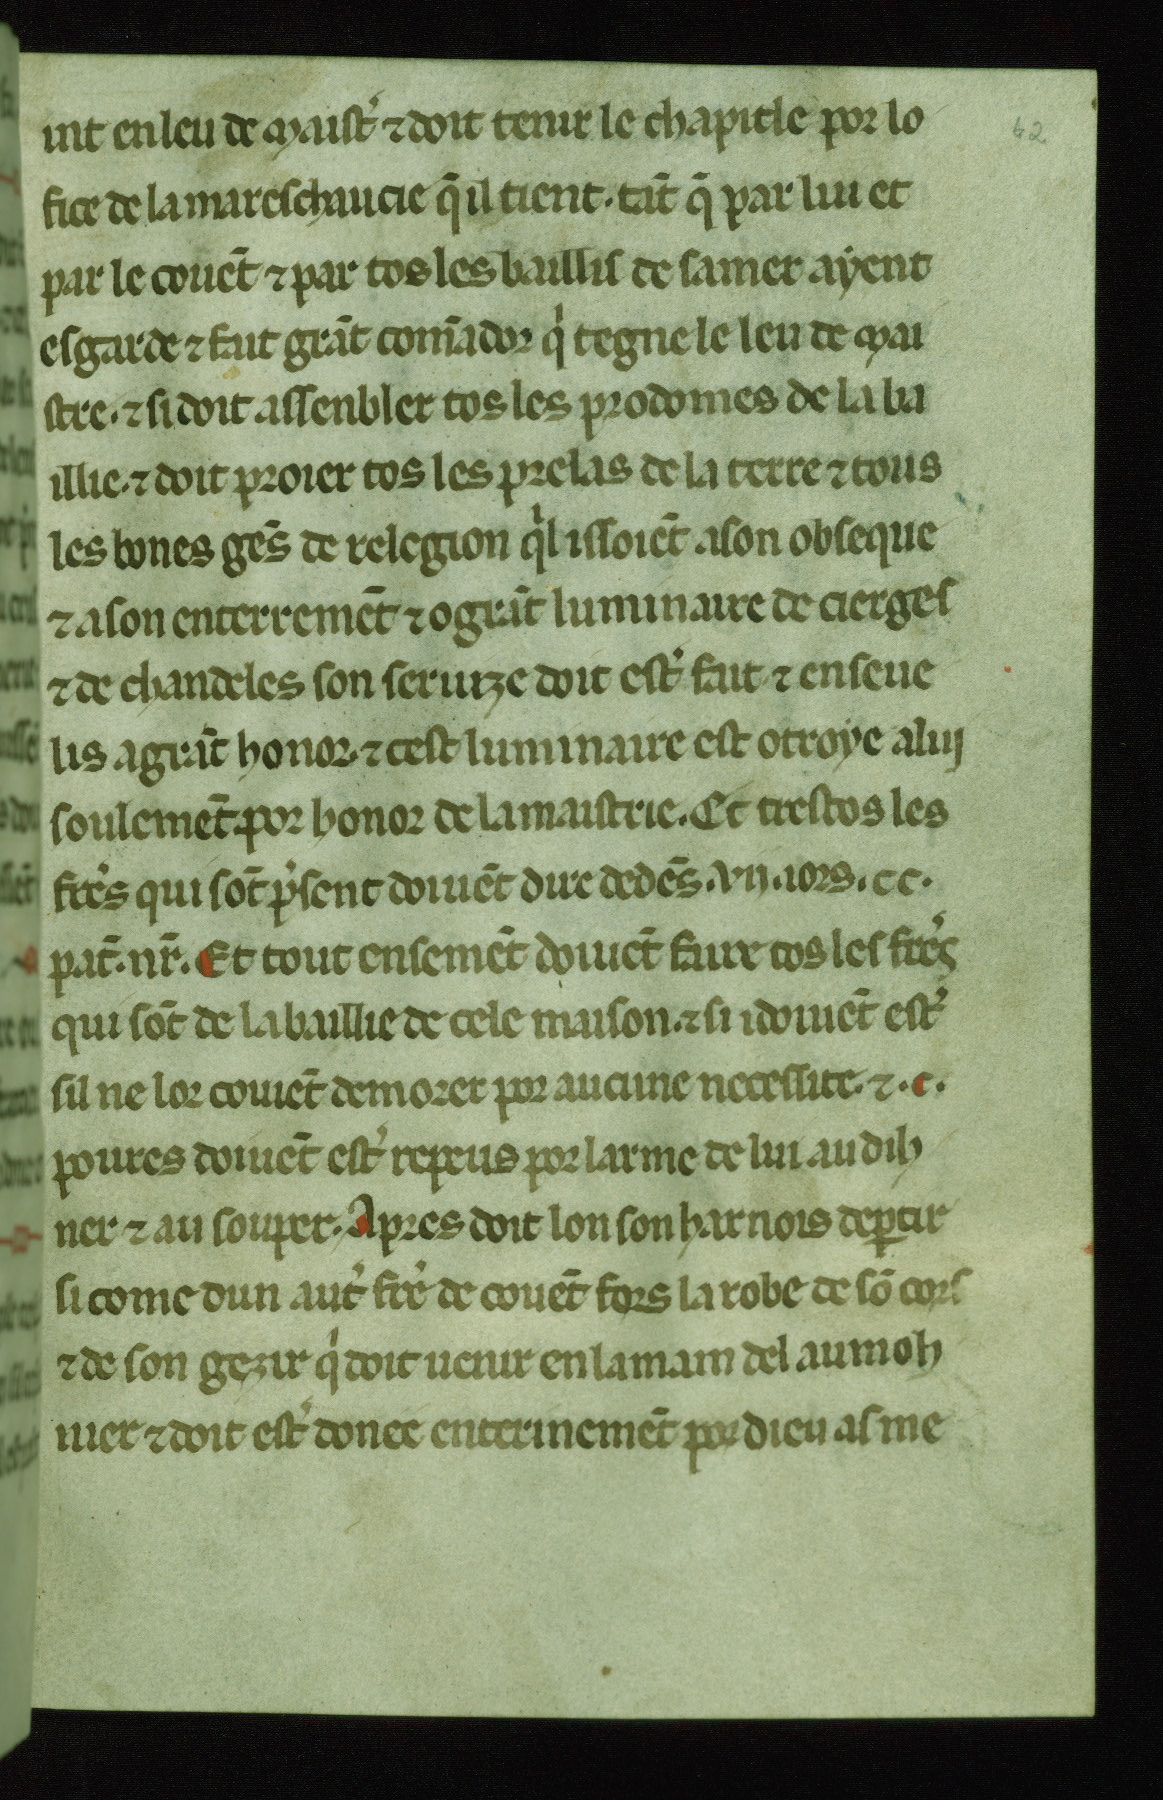 62
uit en leu de maist᾽ ⁊ doit tenir le chapitle por lo
fice de la mareschaucie q̄ il tient. tāt q̄ par lui et
par le couēt ⁊ par tos les baillis de samer ayent
esgarde ⁊ fait grāt comādor qⁱ tegne le leu de mai
stre. ⁊ si doit assenbler tos les prodomes de la ba
illie. ⁊ doit proier tos les prelas de la terre ⁊ tous
les bones gēs de relegion qⁱl issoiēt a son obseque
⁊ a son enterremēt ⁊ o grāt luminaire de cierges
⁊ de chandeles son seruize doit est᾽ fait ⁊ enseue
lis a grāt honor. ⁊ cest luminaire est otroye a luij
soulemēt por honor de la maistrie. Et trestos les
fre᾽s qui sōt p᾽sent doiuēt dire dedēs .vij. iors. cc.
pat̄. nr̄. Et tout ensemēt doiuēt faire tos les fre᾽s
qui sōt de la baillie de cele maison. ⁊ si i doiuēt est᾽
sil ne lor couiēt demorer por aucune necessite. ⁊ .c.
poures doiuēt est᾽ repeus por larme de lui au dih
ner ⁊ au souper. Apres doit lon son harnois deꝑtir
si come dun aut᾽ fre᾽ de couēt fors la robe de sō cors
⁊ de son gezir qⁱ doit uenir en la main del aumoh
nier ⁊ doit est᾽ donee enterinemēt por dieu as me